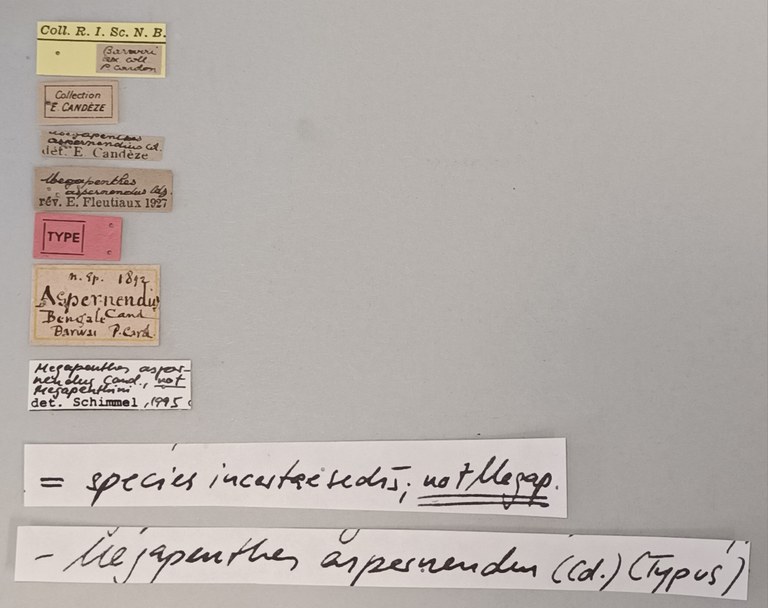 Coll. R. I. Sc. N. B.
Barwai
ex coll.
P. Cardon
Collection
E. CANDÈZE
Megapenthes
aspernendus Cd.
dét. E. Candèze
Megapenthes
aspernendus Cdz.
rév. E. Fleutiaux 1927
TYPE
n. sp. 1892
Aspernendus
Bengale Cand
Barwai P. Card.
Megapenthes asper-
nendus Cand., not
Megapenthini
det. Schimmel, 1995
= species incertae sedis; not Megap.
- Megapenthes aspernendus (Cd.) (Typus)